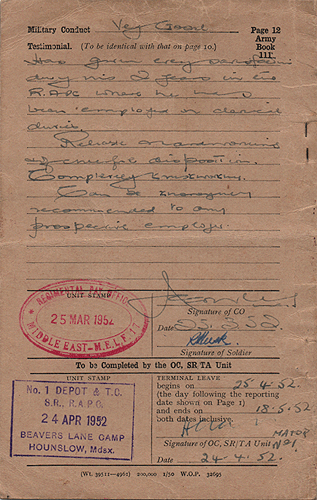 Military Conduct Very Good Page 12
Testimonial. (To be identical with that on page 10.) Army
Book
111
Has given every satisfaction
during his 2 years in the
R.A.P.C. where he has
been employed on clerical
duties.
cheerful disposition.
Completely trustworthy.
Can be
recommended to any
prospective employer.
UNIT STAMP
REGIMENTAL PAY OFFICE
25 MAR 1952
MIDDLE EAST - M.E.L.F.
Signature of CO
Date 25.3.52
Signature of Soldier
To be Completed by the OC, SR/TA Unit
UNIT STAMP
No. 1 DEPOT & T.C.
S.R., R.A.P.C.
24 APR 1952
BEAVERS LANE CAMP
HOUNSLOW, Mdsx.
TERMINAL LEAVE
begins on 25.4.52.
(the day following the reporting
date shown on Page 1)
and ends on 18.5.52
both dates inclusive.
MAJOR
Signature of OC, SR/TA Unit
Date 24.4.52.
(Wt. 39511—4961) 200,000 2/50 W.O.P. 32695